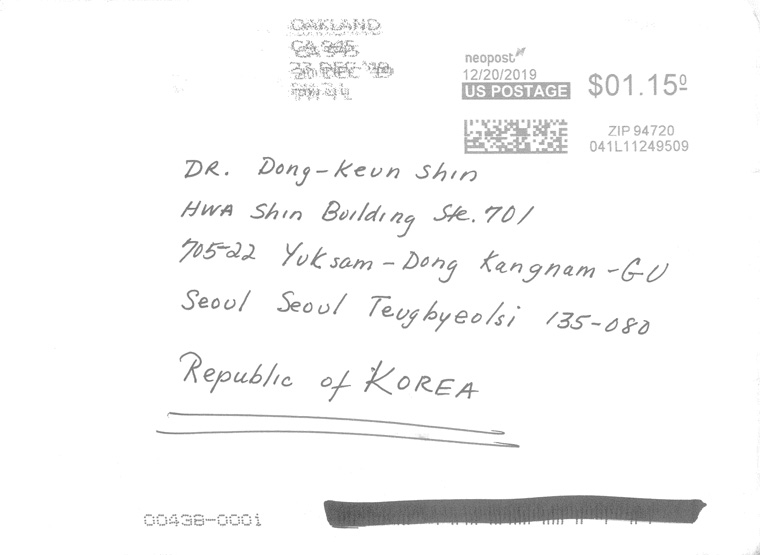 OAKLAND
CA 945
20 DEC '19
PM 4 L
neopost
12/20/2019
US POSTAGE
$01.15⁰
ZIP 94720
041L11249509
DR. Dong-Keun Shin
HWA Shin Building Ste. 701
705-22 Yuksam-Dong Kangnam-GU
Seoul Seoul Teugbyeolsi 135-080
Republic of KOREA
00438-0001